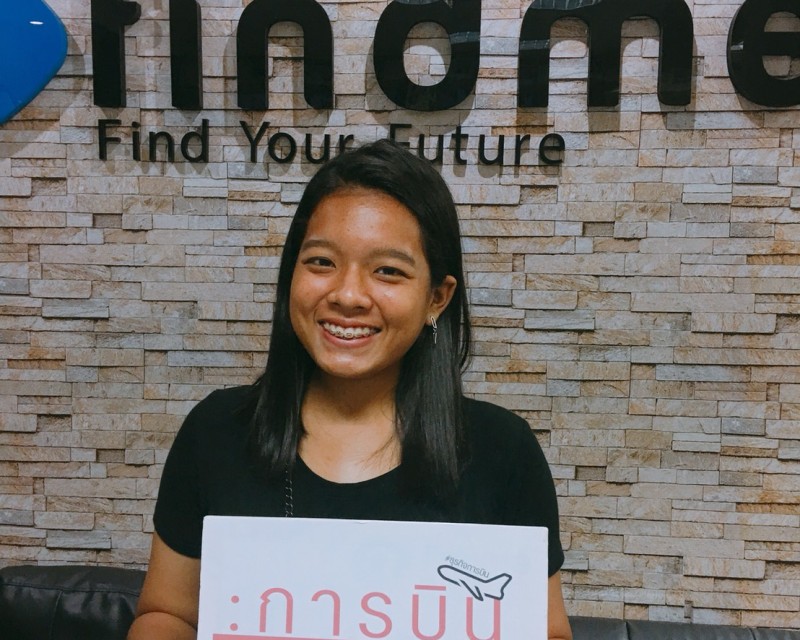 findme
Find Your Future
#ธุรกิจการบิน
:การบิน